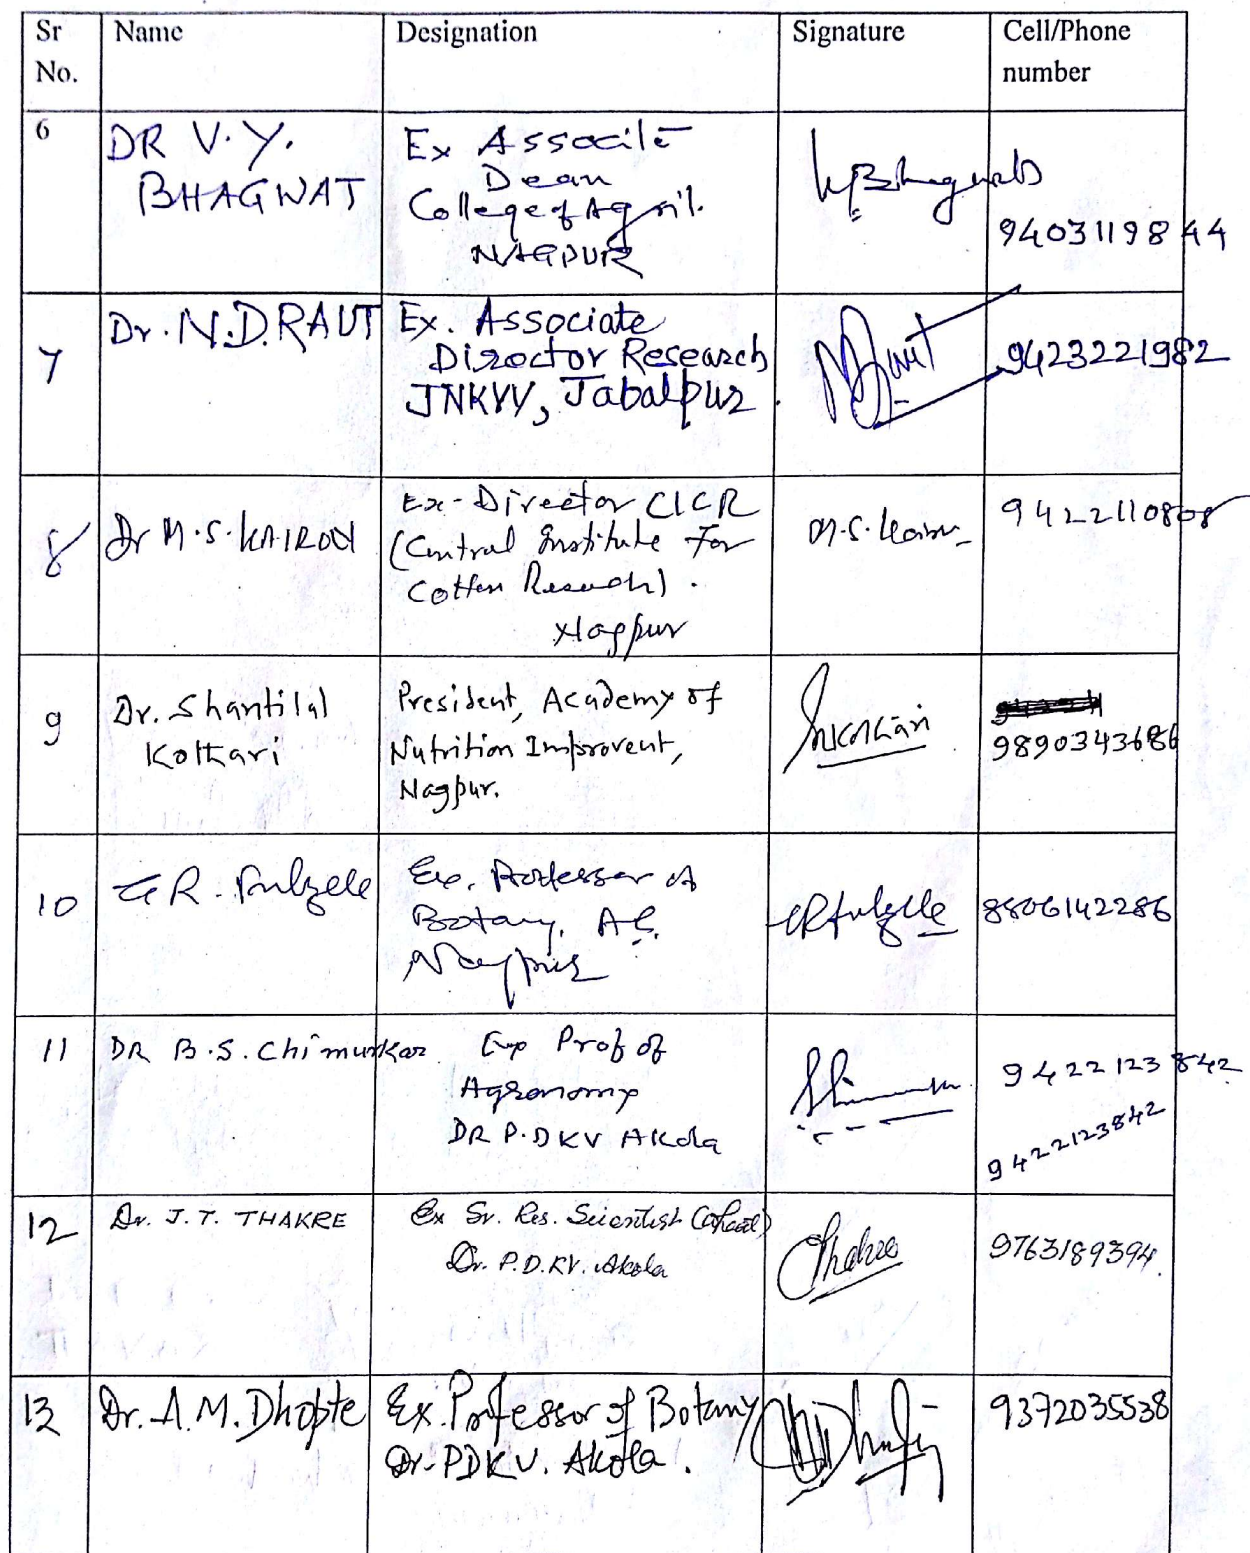 Sr No. Name Designation Signature Cell/Phone number
6
DR V. Y.
BHAGWAT
Ex Associte
Dean
College of Agril.
NAGPUR
9403119844
7
Dr. N.D. RAUT
Ex. Associate
Director Research
JNKVV, Jabalpur.
9423221982
8
Dr M.S. KAIRON
Ex-Director CICR
(Central Institute For
Cotton Research).
Nagpur
9422110808
9
Dr. Shantilal
Kothari
President, Academy of
Nutrition Improvent,
Nagpur.
9890343686
10
G R. Fulzele
Ex. Professor of
Botany, AC.
Nagpur
8806142286
11
DR B.S. Chimurkar
Prof of
Agronomy
DR P.DKV Akola
9422123842
9422123842
12
Dr. J.T. THAKRE
Ex Sr. Res. Scientist
Dr. P.D.KV. Akola
9763189394.
13
Dr. A.M. Dhopte
Ex. Professor of Botany
Dr. PDKV. Akola.
9372035538